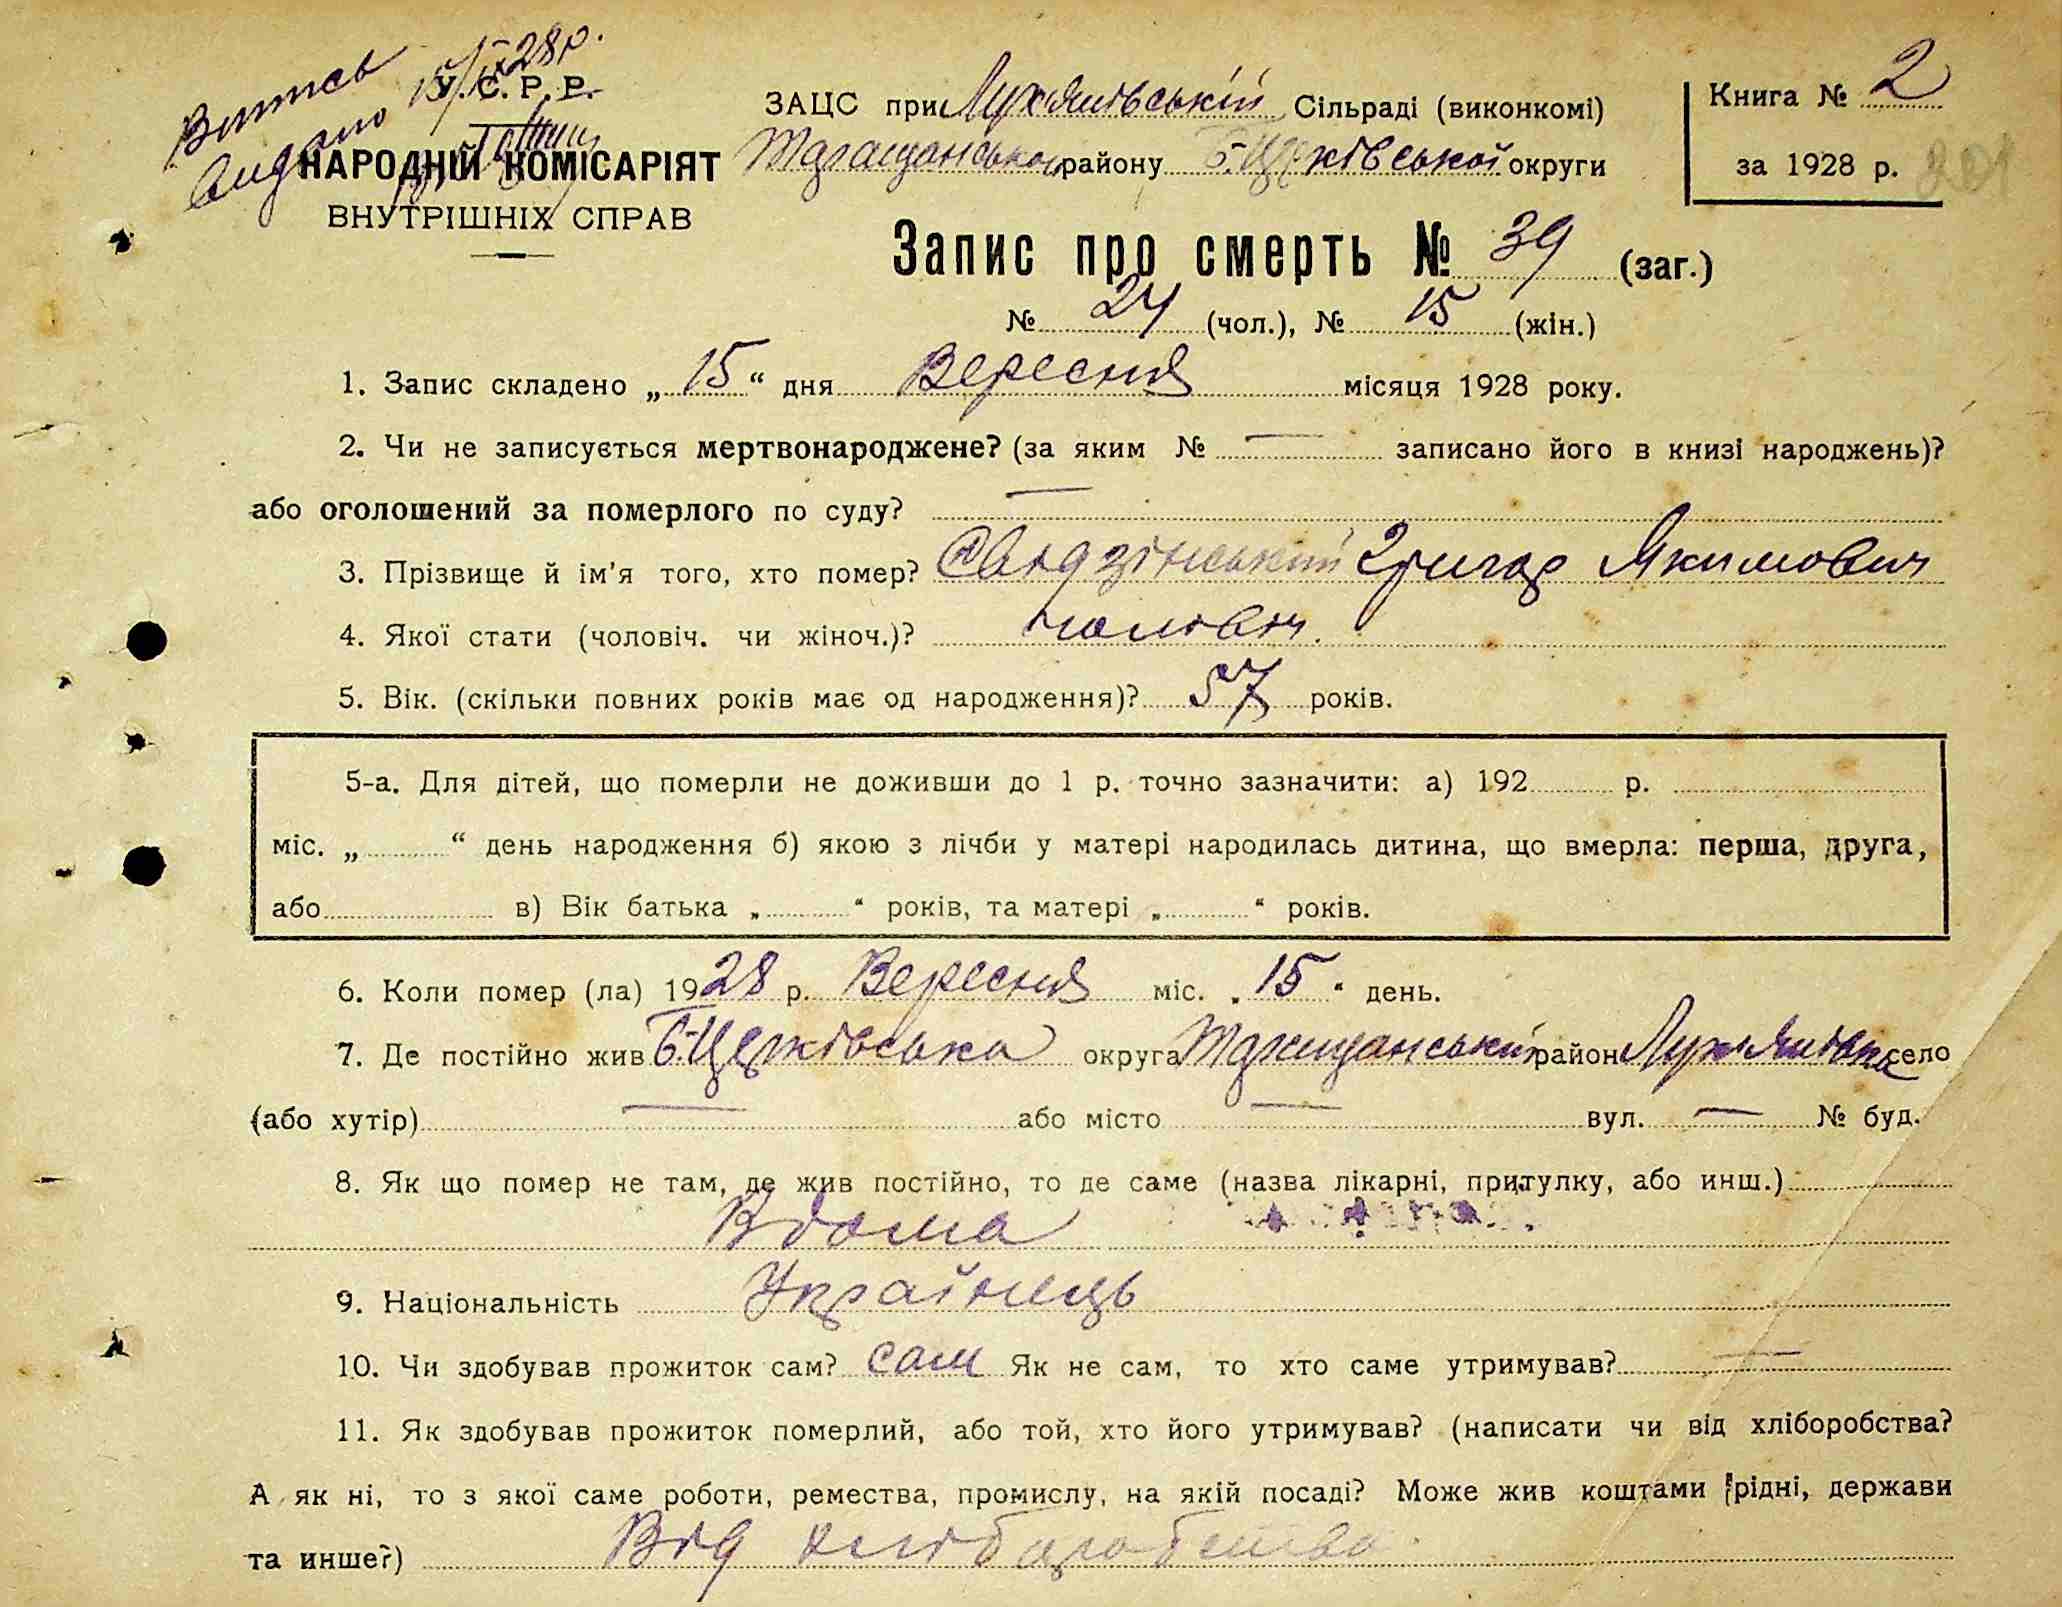 Витись
видано 15/IX 28 р.
У. С. Р. Р.
НАРОДНІЙ КОМІСАРІЯТ
ВНУТРІШНІХ СПРАВ
ЗАЦС при Лук'янівській Сільраді (виконкомі)
Таращанського району Б-Церківської округи
Книга № 2
за 1928 р. 201
Запис про смерть № 39 (заг.)
№ 24 (чол.), № 15 (жін.)
1. Запис складено „ 15 “ дня Вересня місяця 1928 року.
2. Чи не записується мертвонароджене? (за яким № — записано його в книзі народжень)?
або оголошений за померлого по суду? —
3. Прізвище й ім'я того, хто помер? Свидзінський Григор Якимович
4. Якої стати (чоловіч. чи жіноч.)? чоловіч.
5. Вік. (скільки повних років має од народження)? 57 років.
5-а. Для дітей, що померли не доживши до 1 р. точно зазначити: а) 192 р.
міс. „ “ день народження б) якою з лічби у матері народилась дитина, що вмерла: перша, друга,
або в) Вік батька „ “ років, та матері „ “ років.
6. Коли помер (ла) 1928 р. Вересня міс. „ 15 “ день.
7. Де постійно жив Б-Церківська округа Таращанський район Лук'янівка село
(або хутір) — або місто — вул. — № буд.
8. Як що помер не там, де жив постійно, то де саме (назва лікарні, притулку, або инш.)
Вдома
9. Національність Українець
10. Чи здобував прожиток сам? сам Як не сам, то хто саме утримував? —
11. Як здобував прожиток померлий, або той, хто його утримував? (написати чи від хліборобства?
А як ні, то з якої саме роботи, ремества, промислу, на якій посаді? Може жив коштами рідні, держави
та инше?) Від хліборобства.